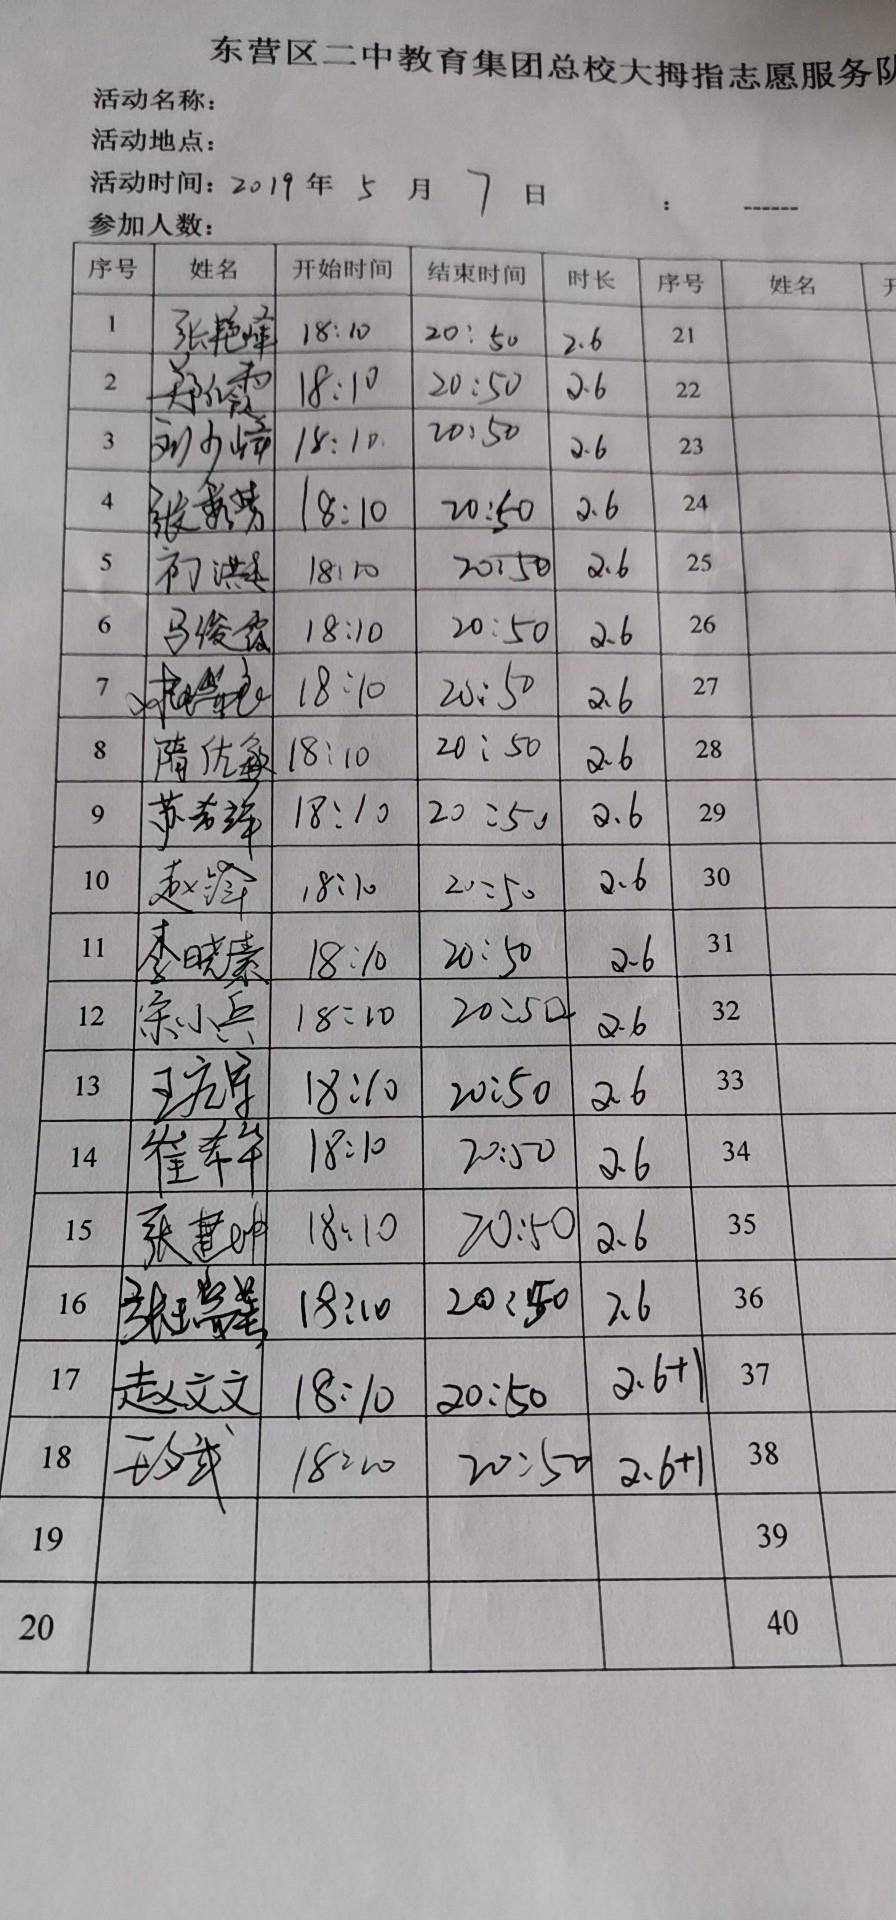 东营区二中教育集团总校大拇指志愿服务队
活动名称：
活动地点：
活动时间：2019年 5 月 7 日 ： ------
参加人数：
序号 姓名 开始时间 结束时间 时长 序号 姓名 开
1 张艳峰 18:10 20:50 2.6 21
2 郑代霞 18:10 20:50 2.6 22
3 刘少峰 18:10 20:50 2.6 23
4 张 18:10 20:50 2.6 24
5 初洪 18:10 20:50 2.6 25
6 马俊霞 18:10 20:50 2.6 26
7 18:10 20:50 2.6 27
8 隋佐敏 18:10 20:50 2.6 28
9 苏希 18:10 20:50 2.6 29
10 赵 18:10 20:50 2.6 30
11 李晓素 18:10 20:50 2.6 31
12 宋小兵 18:10 20:50 2.6 32
13 王 18:10 20:50 2.6 33
14 崔 18:10 20:50 2.6 34
15 张 18:10 20:50 2.6 35
16 张 18:10 20:50 2.6 36
17 赵文文 18:10 20:50 2.6+1 37
18 18:10 20:50 2.6+1 38
19 39
20 40